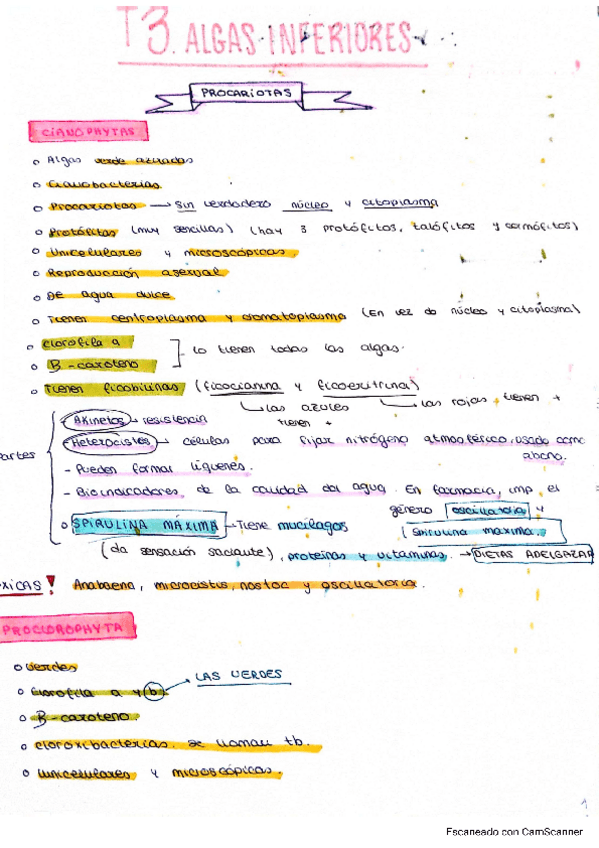 T3. ALGAS INFERIORES
PROCARIOTAS
CIANOPHYTAS
o Algas verde azuladas
o Cianobacterias
o Procariotas → sin verdadero núcleo y citoplasma
o Protófitos (muy sencillas) (hay 3 protófitos, talófitos y cormófitos)
o Unicelulares y microscópicas.
o Reproducción asexual
o De agua dulce
o Tienen centroplasma y cromatoplasma (En vez de núcleo y citoplasma)
o Clorofila a
o B-caroteno
] - lo tienen todas las algas.
o Tienen ficobilinas (ficocianina y ficoeritrina)
las azules tienen +
las rojas tienen +
artes
- Akinetos → resistencia
- Heterocistes → células para fijar nitrógeno atmosférico, usado como abono.
- Pueden formar líquenes.
- Bioindicadores de la calidad del agua. En farmacia, imp. el
género oscillatoria y
(spirulina maxima.
o SPIRULINA MÁXIMA - Tiene mucílagos
(da sensación saciante), proteínas y vitaminas. → DIETAS ADELGAZAR
XICAS! Anabaena, microcistis, nostoc y oscillatoria.
PROCLOROPHYTA
o Verdes
o Clorofila a y b → LAS VERDES
o B-caroteno
o Cloroxibacterias. se llaman tb.
o Unicelulares y microscópicas.
1
Escaneado con CamScanner